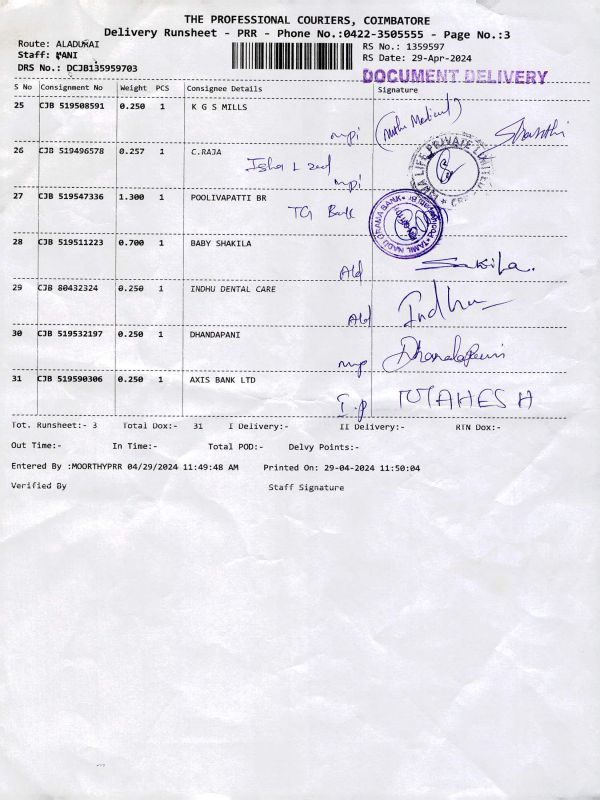 THE PROFESSIONAL COURIERS, COIMBATORE
Delivery Runsheet - PRR - Phone No.:0422-3505555 - Page No.:3
Route: ALADURAI
Staff: PANI
DRS No.: DCJB135959703
RS No.: 1359597
RS Date: 29-Apr-2024
DOCUMENT DELIVERY
S No Consignment No Weight PCS Consignee Details Signature
25 CJB 519508591 0.250 1 K G S MILLS
mpi
26 CJB 519496578 0.257 1 C.RAJA
Isha L
mpi
LIFE PRIVATE LIMITED
27 CJB 519547336 1.300 1 POOLIVAPATTI BR
TG Bank
TAMIL NADU GRAMA BANK
28 CJB 519511223 0.700 1 BABY SHAKILA
Ald Sakila.
29 CJB 80432324 0.250 1 INDHU DENTAL CARE
Ald Indhu
30 CJB 519532197 0.250 1 DHANDAPANI
mp Dhandapani
31 CJB 519590306 0.250 1 AXIS BANK LTD
I.p MAHESH
Tot. Runsheet:- 3 Total Dox:- 31 I Delivery:- II Delivery:- RTN Dox:-
Out Time:- In Time:- Total POD:- Delvy Points:-
Entered By :MOORTHYPRR 04/29/2024 11:49:48 AM Printed On: 29-04-2024 11:50:04
Verified By Staff Signature